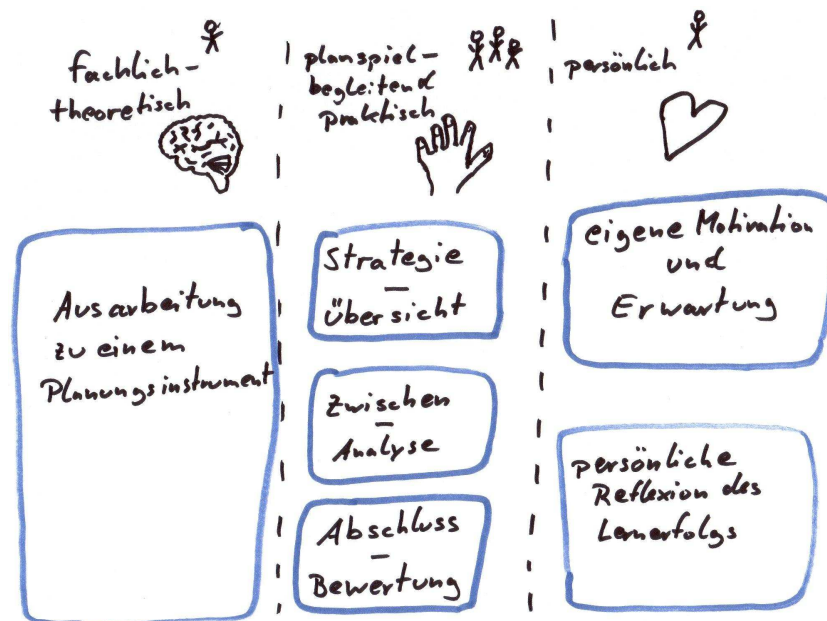 fachlich-
theoretisch
Ausarbeitung
zu einem
Planungsinstrument
planspiel-
begleitend
praktisch
Strategie
-
übersicht
Zwischen
-
Analyse
Abschluss
-
Bewertung
persönlich
eigene Motivation
und
Erwartung
persönliche
Reflexion des
Lernerfolgs